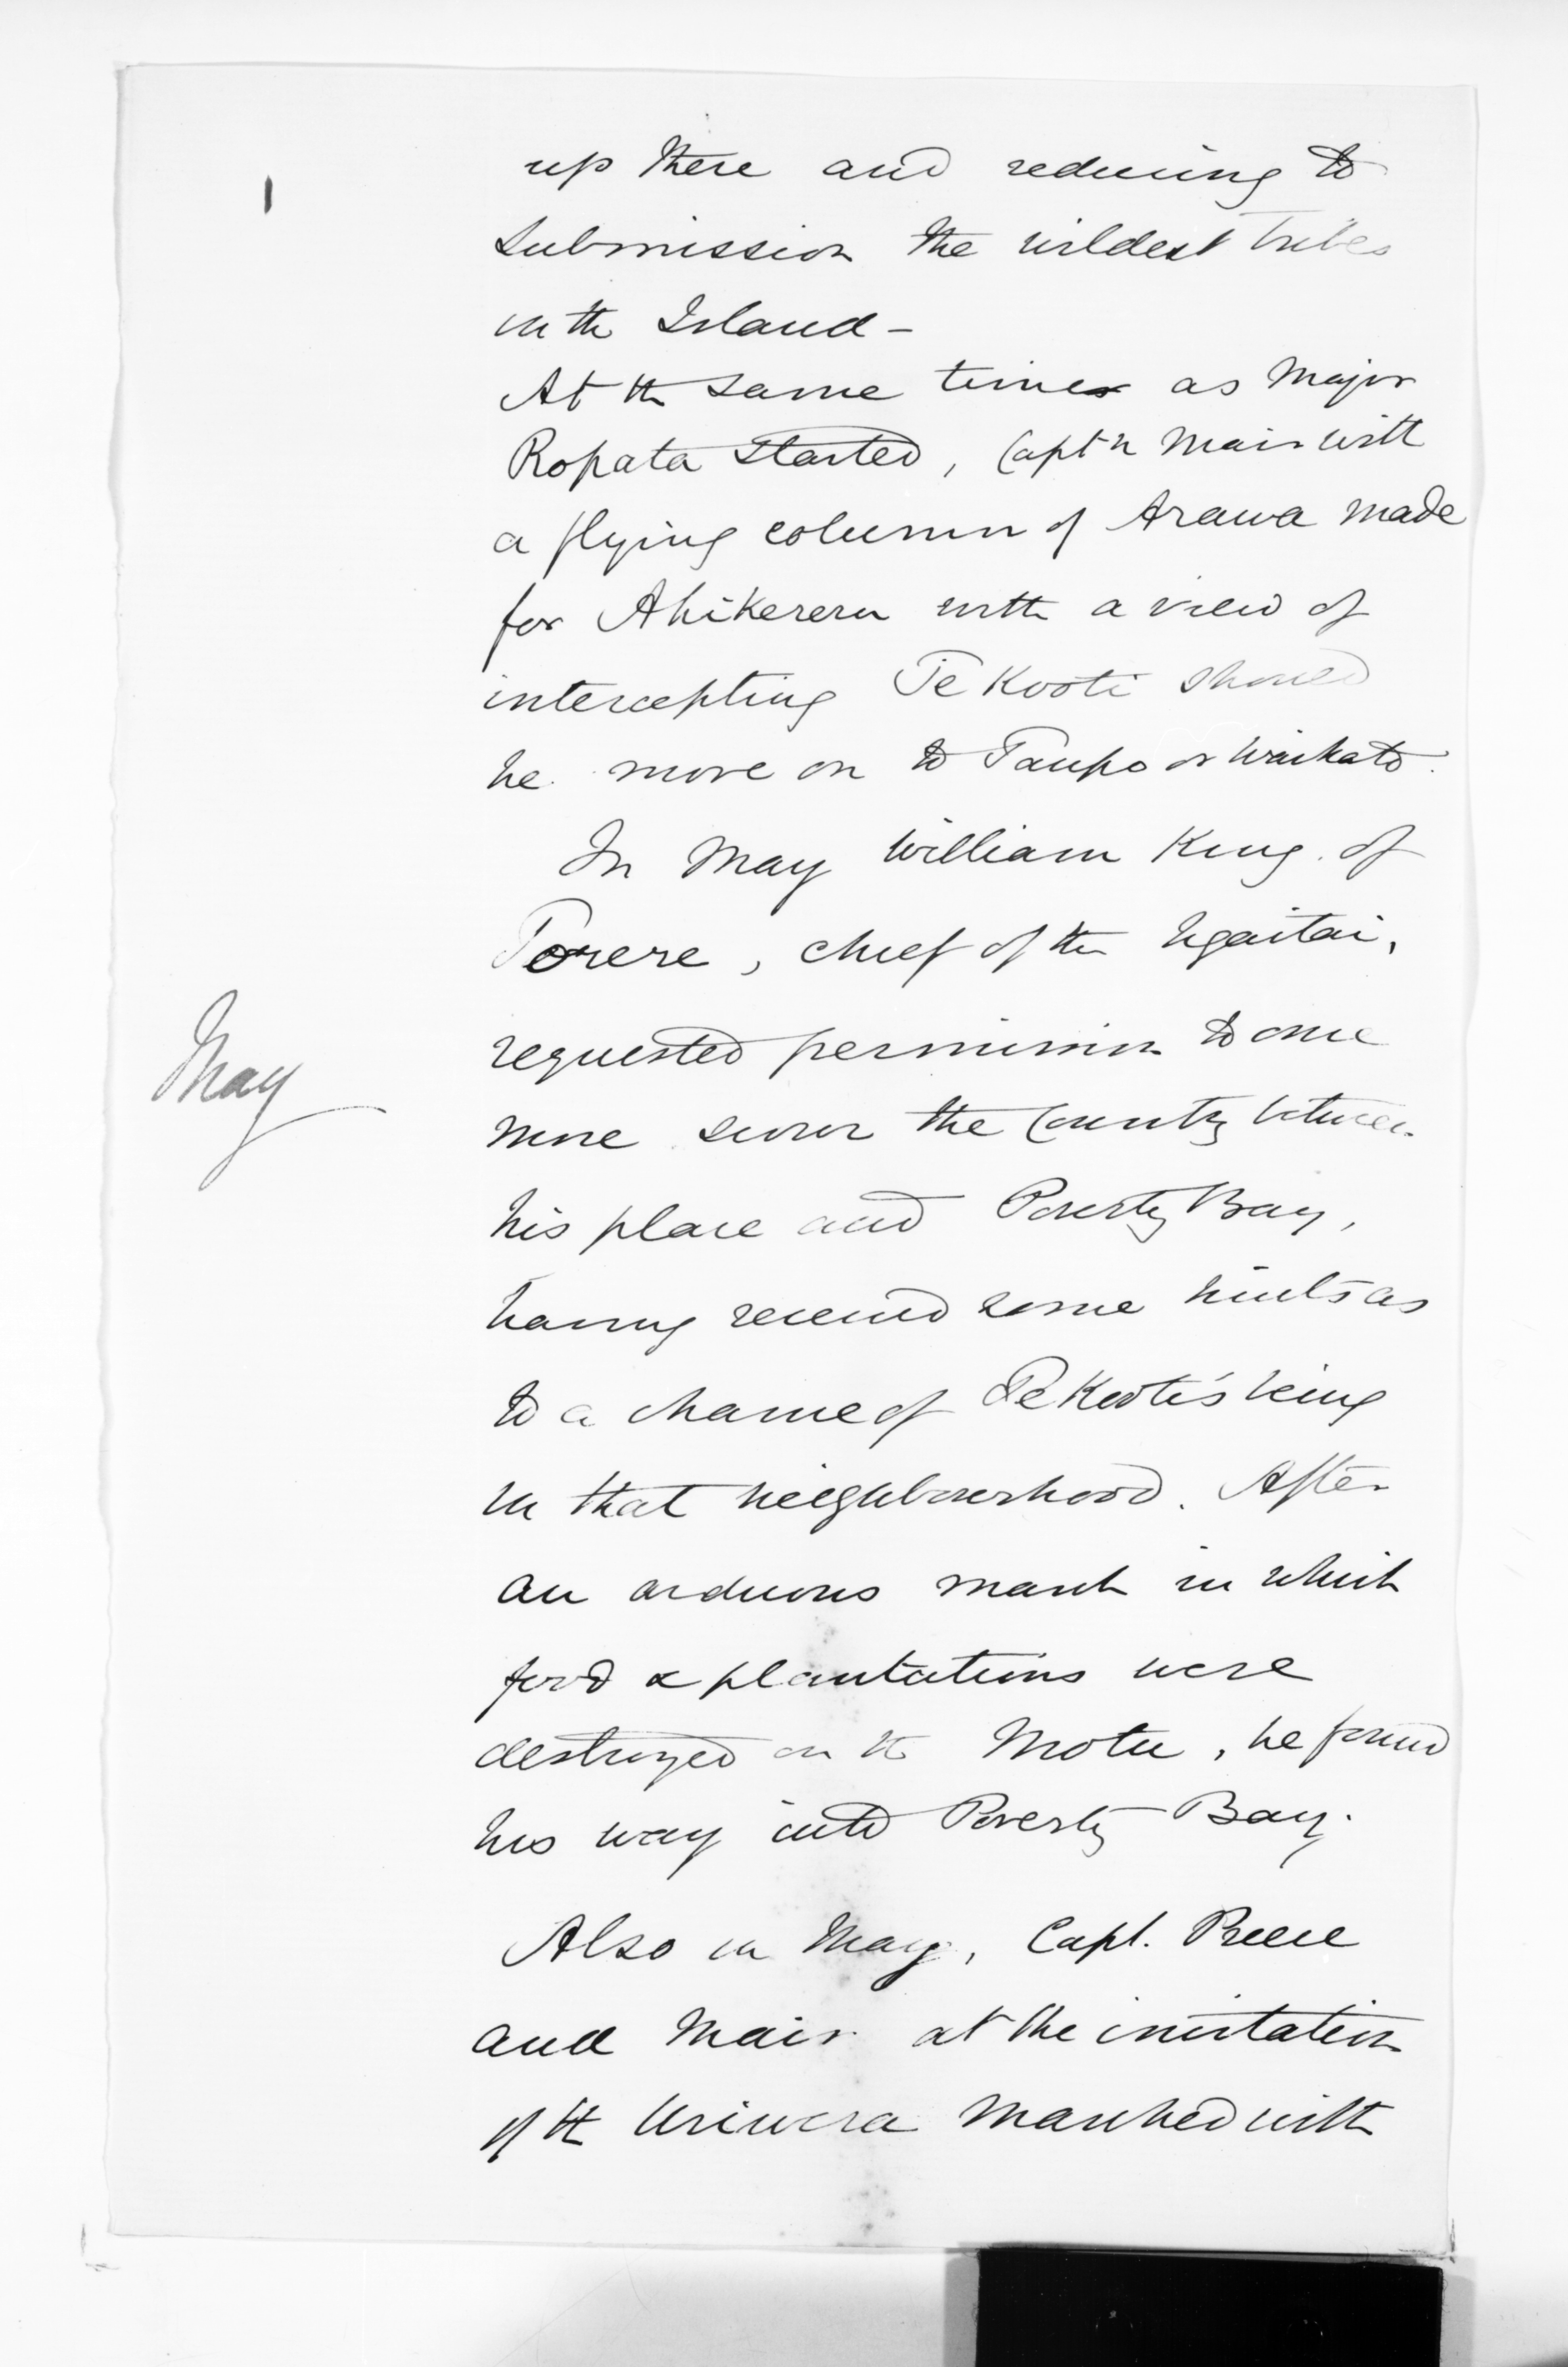 up there and reducing to
submission the wildest tribes
in the Island -
At the same time as Major
Ropata started, Capt'n Mair with
a flying column of Arawa made
for Ahikereru with a view of
intercepting Te Kooti should
he move on to Taupo or Waikato.
In May William King of
Torere, chief of the Ngaitai,
requested permission to once
May
more scour the Country between
his place and Poverty Bay,
having received some hints as
to a chance of Te Kooti's being
in that neighbourhood. After
an arduous march in which
food & plantations were
destroyed on the Motu, he found
his way into Poverty Bay.
Also in May, Capt. Preece
and Mair at the invitation
of the Uriwera marched with